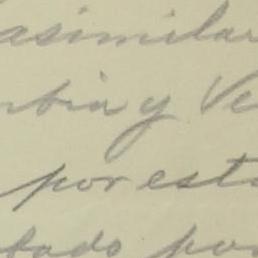 asimilar
mbia y Ve
por esta
tado por